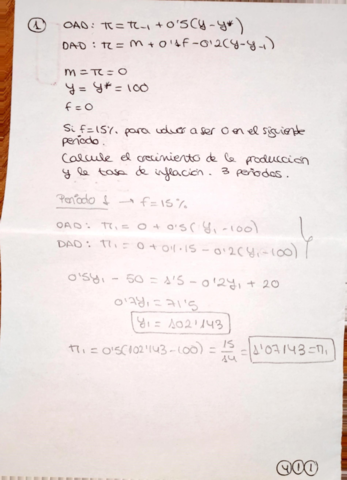 ① OAD: π = π-1 + 0'5(y - y*)
DAD: π = m + 0'1f - 0'2(y - y-1)
m = π = 0
y = y* = 100
f = 0
Si f = 15% para volver a ser 0 en el siguiente
periodo.
Calcule el crecimiento de la producción
y la tasa de inflación. 3 periodos.
Período 1 → f = 15%
OAD: π1 = 0 + 0'5(y1 - 100)
DAD: π1 = 0 + 0'1·15 - 0'2(y1 - 100)
0'5y1 - 50 = 1'5 - 0'2y1 + 20
0'7y1 = 71'5
y1 = 102'143
π1 = 0'5(102'143 - 100) = 15/14 = 1'07143 = π1